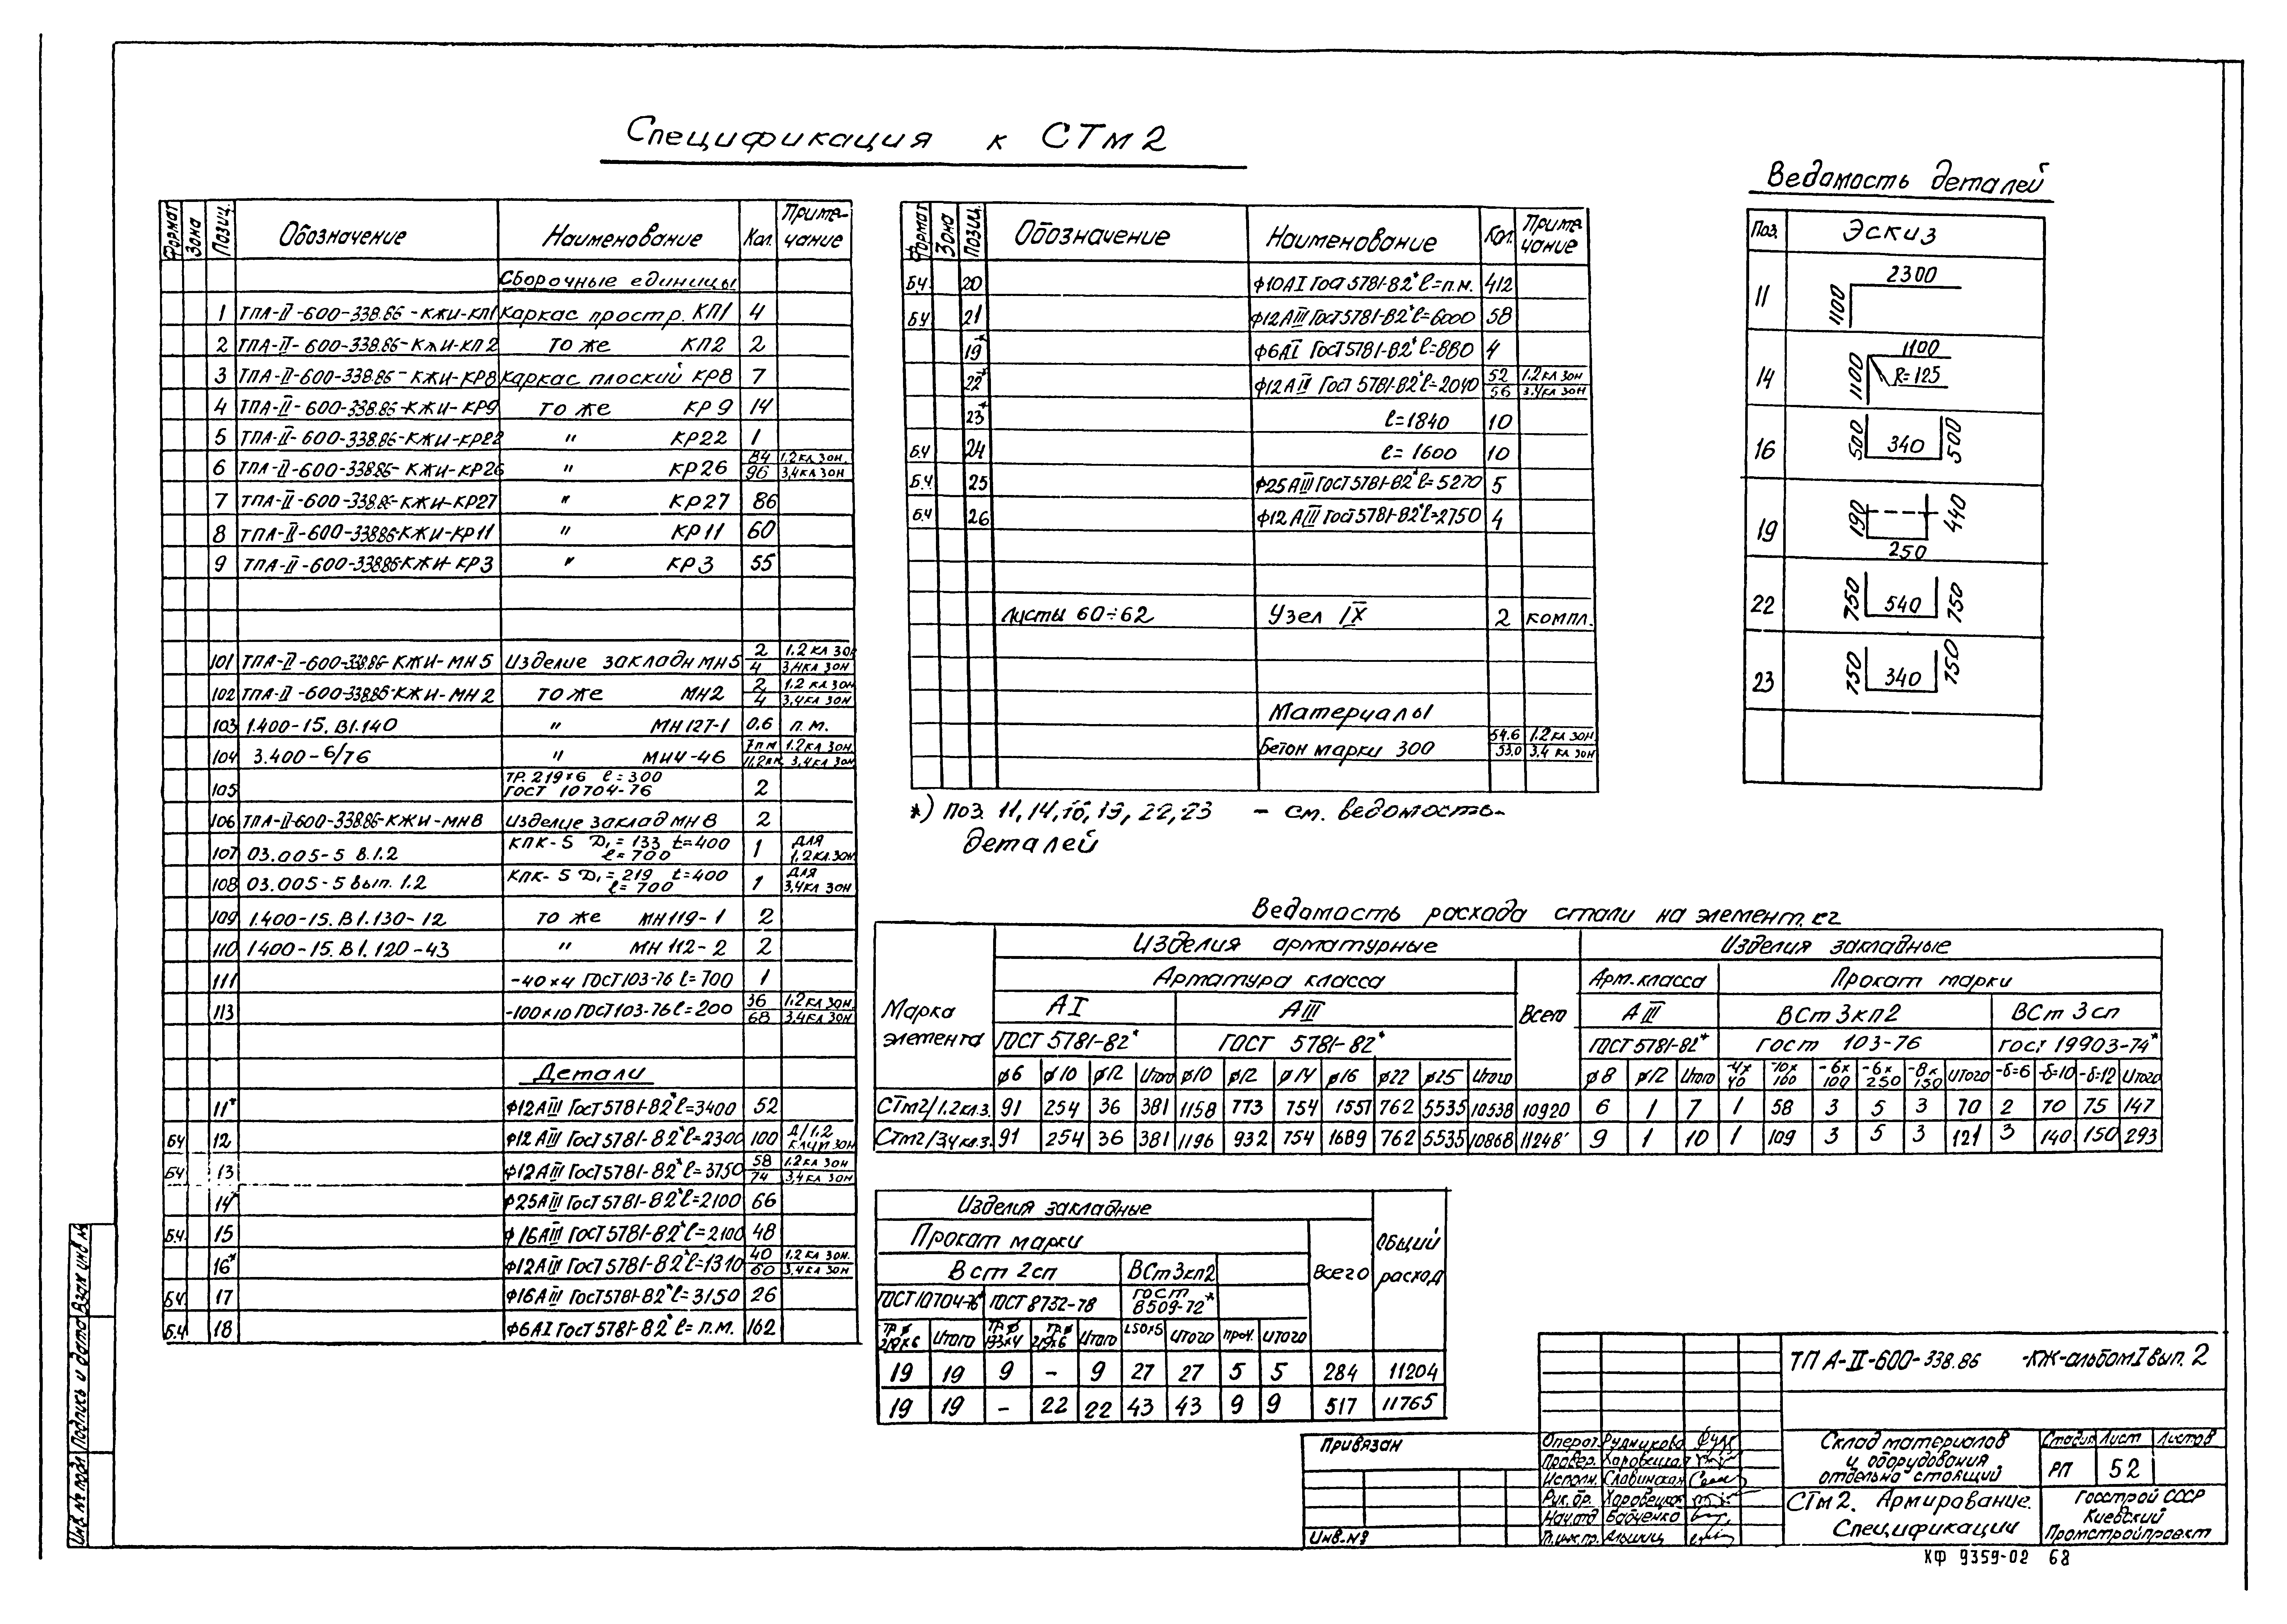 Спецификация к СТм2
Формат Зона Позиц. Обозначение Наименование Кол. Приме-чание
Сборочные единицы
1 ТПА-II-600-338.86-КЖИ-КП1 Каркас простр. КП1 4
2 ТПА-II-600-338.86-КЖИ-КП2 то же КП2 2
3 ТПА-II-600-338.86-КЖИ-КР8 Каркас плоский КР8 7
4 ТПА-II-600-338.86-КЖИ-КР9 то же КР9 14
5 ТПА-II-600-338.86-КЖИ-КР22 " КР22 1
6 ТПА-II-600-338.86-КЖИ-КР26 " КР26 84 1.2 кл зон.
96 3,4 кл зон
7 ТПА-II-600-338.86-КЖИ-КР27 " КР27 86
8 ТПА-II-600-338.86-КЖИ-КР11 " КР11 60
9 ТПА-II-600-338.86-КЖИ-КР3 " КР3 55
101 ТПА-II-600-338.86-КЖИ-МН5 Изделие закладн МН5 2 1,2 кл зон
4 3,4 кл зон
102 ТПА-II-600-338.86-КЖИ-МН2 то же МН2 2 1.2 кл зон
4 3,4 кл зон
103 1.400-15.В1.140 " МН127-1 0,6 п.м.
104 3.400-6/76 " МН4-46 7пм 1.2 кл зон
11,2пм 3,4 кл зон
105 ТР.219×6 ℓ=300
ГОСТ 10704-76 2
106 ТПА-II-600-338.86-КЖИ-МН8 Изделие заклад МН8 2
107 03.005-5 В.1.2 КПК-5 D₁=133 t=400
ℓ=700 1 для 1,2 кл. зон
108 03.005-5 вып. 1.2 КПК-5 D₁=219 t=400
ℓ=700 1 для 3,4 кл зон
109 1.400-15.В1.130-12 то же МН119-1 2
110 1400-15.В1.120-43 " МН112-2 2
111 -40×4 ГОСТ103-76 ℓ=700 1
113 -100×10 ГОСТ103-76 ℓ=200 36 1,2 кл зон.
68 3,4 кл зон
Детали
11* Ф12АIII Гост 5781-82* ℓ=3400 52
БЧ 12 Ф12АIII Гост 5781-82* ℓ=2300 100 Д/1,2
БЧ 13 Ф12АIII Гост 5781-82* ℓ=3750 58 1.2 кл зон
74 3,4 кл зон
14* Ф25АIII Гост 5781-82* ℓ=2100 66
Б.Ч. 15 Ф16АIII Гост 5781-82* ℓ=2100 48
16* Ф12АIII Гост 5781-82* ℓ=1310 40 1,2 кл зон.
60 3,4 кл зон
Б.Ч. 17 Ф16АIII Гост 5781-82* ℓ=3150 26
Б.Ч 18 Ф6АI Гост 5781-82* ℓ=п.м. 162
Формат Зона Позиц. Обозначение Наименование Кол. Приме чание
Б.Ч 20 Ф10АI Гост 5781-82* ℓ=п.м. 412
Б.Ч 21 Ф12АIII Гост 5781-82* ℓ=6000 58
19* Ф6АI Гост 5781-82* ℓ=880 4
22* Ф12АIII Гост 5781-82* ℓ=2040 52 1.2 кл зон
56 3.4 кл зон
23* ℓ=1840 10
Б.Ч 24 ℓ=1600 10
Б.Ч. 25 Ф25АIII Гост 5781-82* ℓ=5270 5
Б.Ч 26 Ф12АIII Гост 5781-82* ℓ=2750 4
Листы 60÷62 Узел IX 2 компл.
Материалы
Бетон марки 300 54.6 1.2 кл зон
53.0 3,4 кл зон
*) поз. 11,14,16,19,22,23 - см. ведомость
деталей
Ведомость деталей
Поз. Эскиз
11 1100 2300
14 1100 1100 R=125
16 500 340 500
19 190 250 440
22 750 540 750
23 750 340 750
Ведомость расхода стали на элемент. кг
Марка элемента Изделия арматурные Изделия закладные
Арматура класса Всего Арм. класса Прокат марки
АI АIII АIII ВСт 3кп2 ВСт 3сп
ГОСТ 5781-82* ГОСТ 5781-82* ГОСТ 5781-82* Гост 103-76 гост 19903-74*
ф6 ф10 ф12 Итого ф10 ф12 ф14 ф16 ф22 ф25 Итого ф8 ф12 Итого -4×40 -10×100 -6×100 -6×250 -8×150 Итого -δ=6 -δ=10 -δ=12 Итого
СТм2/1.2кл.з. 91 254 36 381 1158 773 754 1557 762 5535 10538 10920 6 1 7 1 58 3 5 3 70 2 70 75 147
СТм2/3,4кл.з. 91 254 36 381 1196 932 754 1689 762 5535 10868 11248 9 1 10 1 109 3 5 3 121 3 140 150 293
Изделия закладные Общий расход
Прокат марки Всего
Вст 2сп ВСт3кп2
ГОСТ10704-76* ГОСТ 8732-78 гост 8509-72*
ТР ф 219×6 Итого ТР ф 133×4 ТР ф 219×6 Итого L50×5 Итого проч. Итого
19 19 9 - 9 27 27 5 5 284 11204
19 19 - 22 22 43 43 9 9 517 11765
Привязан
Инв.№
Операт. Рудникова
Провер.
Исполн. Славинская
Рук.бр.
Нач.отд Бабченко
Гл.инж.пр.
ТП А-II-600-338.86 -КЖ-альбом I вып. 2
Склад материалов
и оборудования
отдельно стоящий
Стадия Лист Листов
РП 52
СТм2. Армирование.
Спецификации
Госстрой СССР
Киевский
Промстройпроект
КФ 9359-02 68
Инв.№ подл Подпись и дата Взам инв №